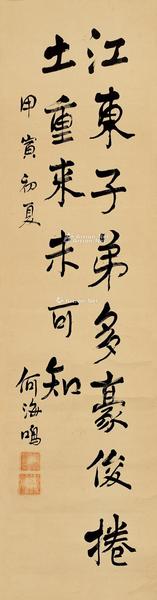 江東子弟多豪俊捲
土重来未可知
甲寅初夏
何海鳴